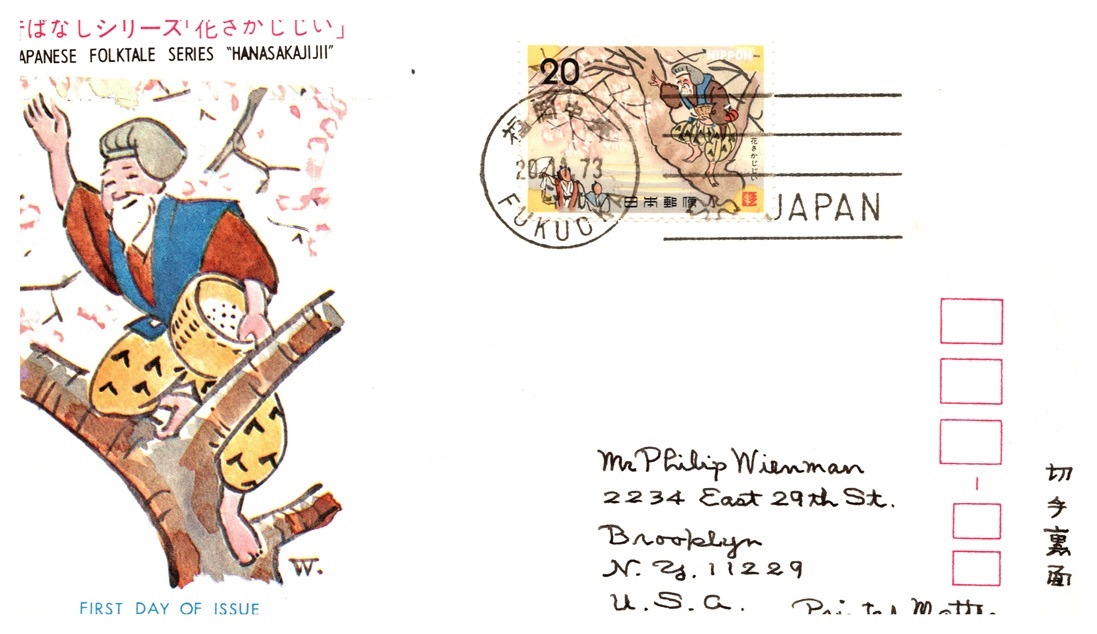 ばなしシリーズ「花さかじじい」
APANESE FOLKTALE SERIES "HANASAKAJIJII"
20
NIPPON
花さかじじい
日本郵便
福岡中央
20.11.73
FUKUOKA
JAPAN
W.
FIRST DAY OF ISSUE
Mr Philip Wienman
2234 East 29th St.
Brooklyn
N.Y. 11229
U.S.A.
Printed Matte
切手裏面